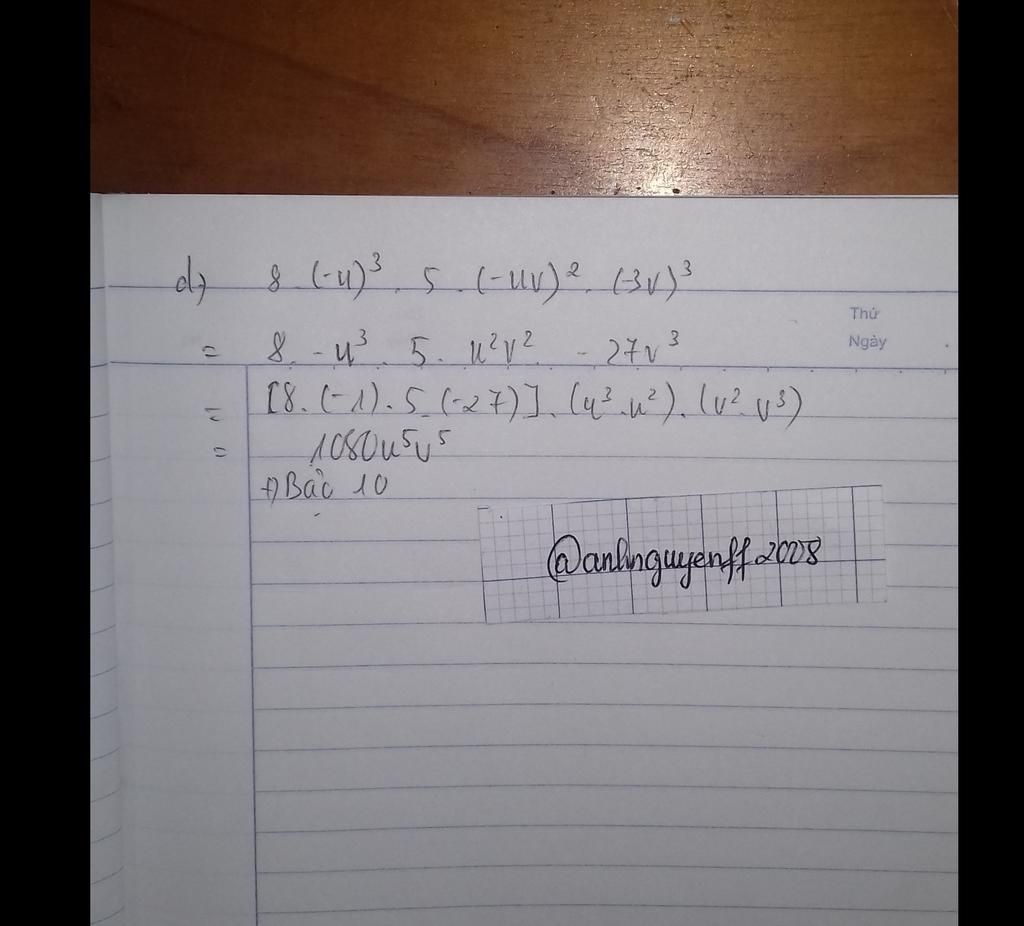 d) 8 (-u)³ . 5 . (-uv)² . (-3v)³
Thứ
Ngày
= 8 . -u³ . 5 . u²v² . -27v³
= [8 . (-1) . 5 . (-27)] . (u³ . u²) . (v² . v³)
= 1080u⁵v⁵
+) Bậc 10
@anhnguyenff2008